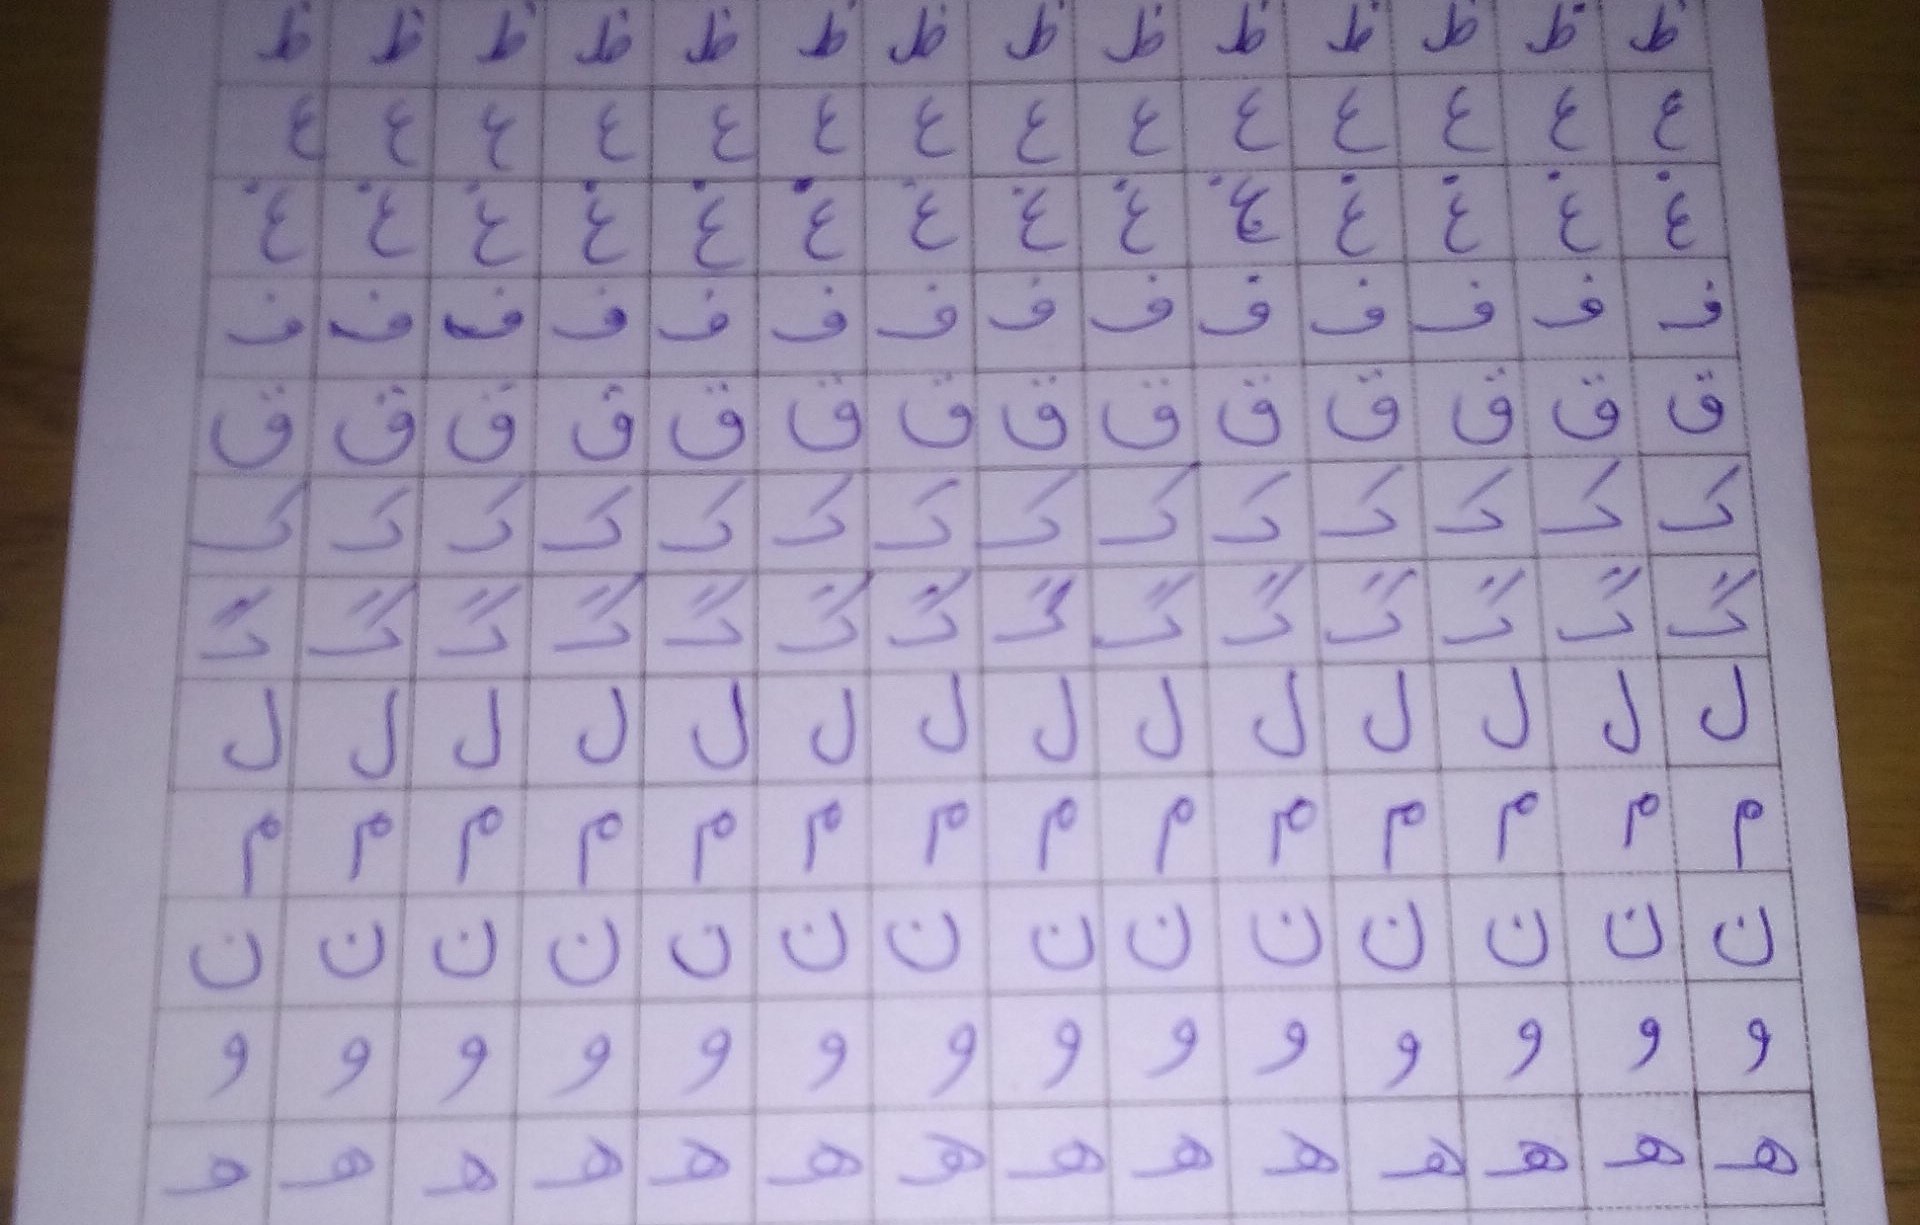 ظ ظ ظ ظ ظ ظ ظ ظ ظ ظ ظ ظ ظ ظ
ع ع ع ع ع ع ع ع ع ع ع ع ع ع
غ غ غ غ غ غ غ غ غ غ غ غ غ غ
ف ف ف ف ف ف ف ف ف ف ف ف ف ف
ق ق ق ق ق ق ق ق ق ق ق ق ق ق
ک ک ک ک ک ک ک ک ک ک ک ک ک ک
گ گ گ گ گ گ گ گ گ گ گ گ گ گ
ل ل ل ل ل ل ل ل ل ل ل ل ل ل
م م م م م م م م م م م م م م
ن ن ن ن ن ن ن ن ن ن ن ن ن ن
و و و و و و و و و و و و و و
ه ه ه ه ه ه ه ه ه ه ه ه ه ه